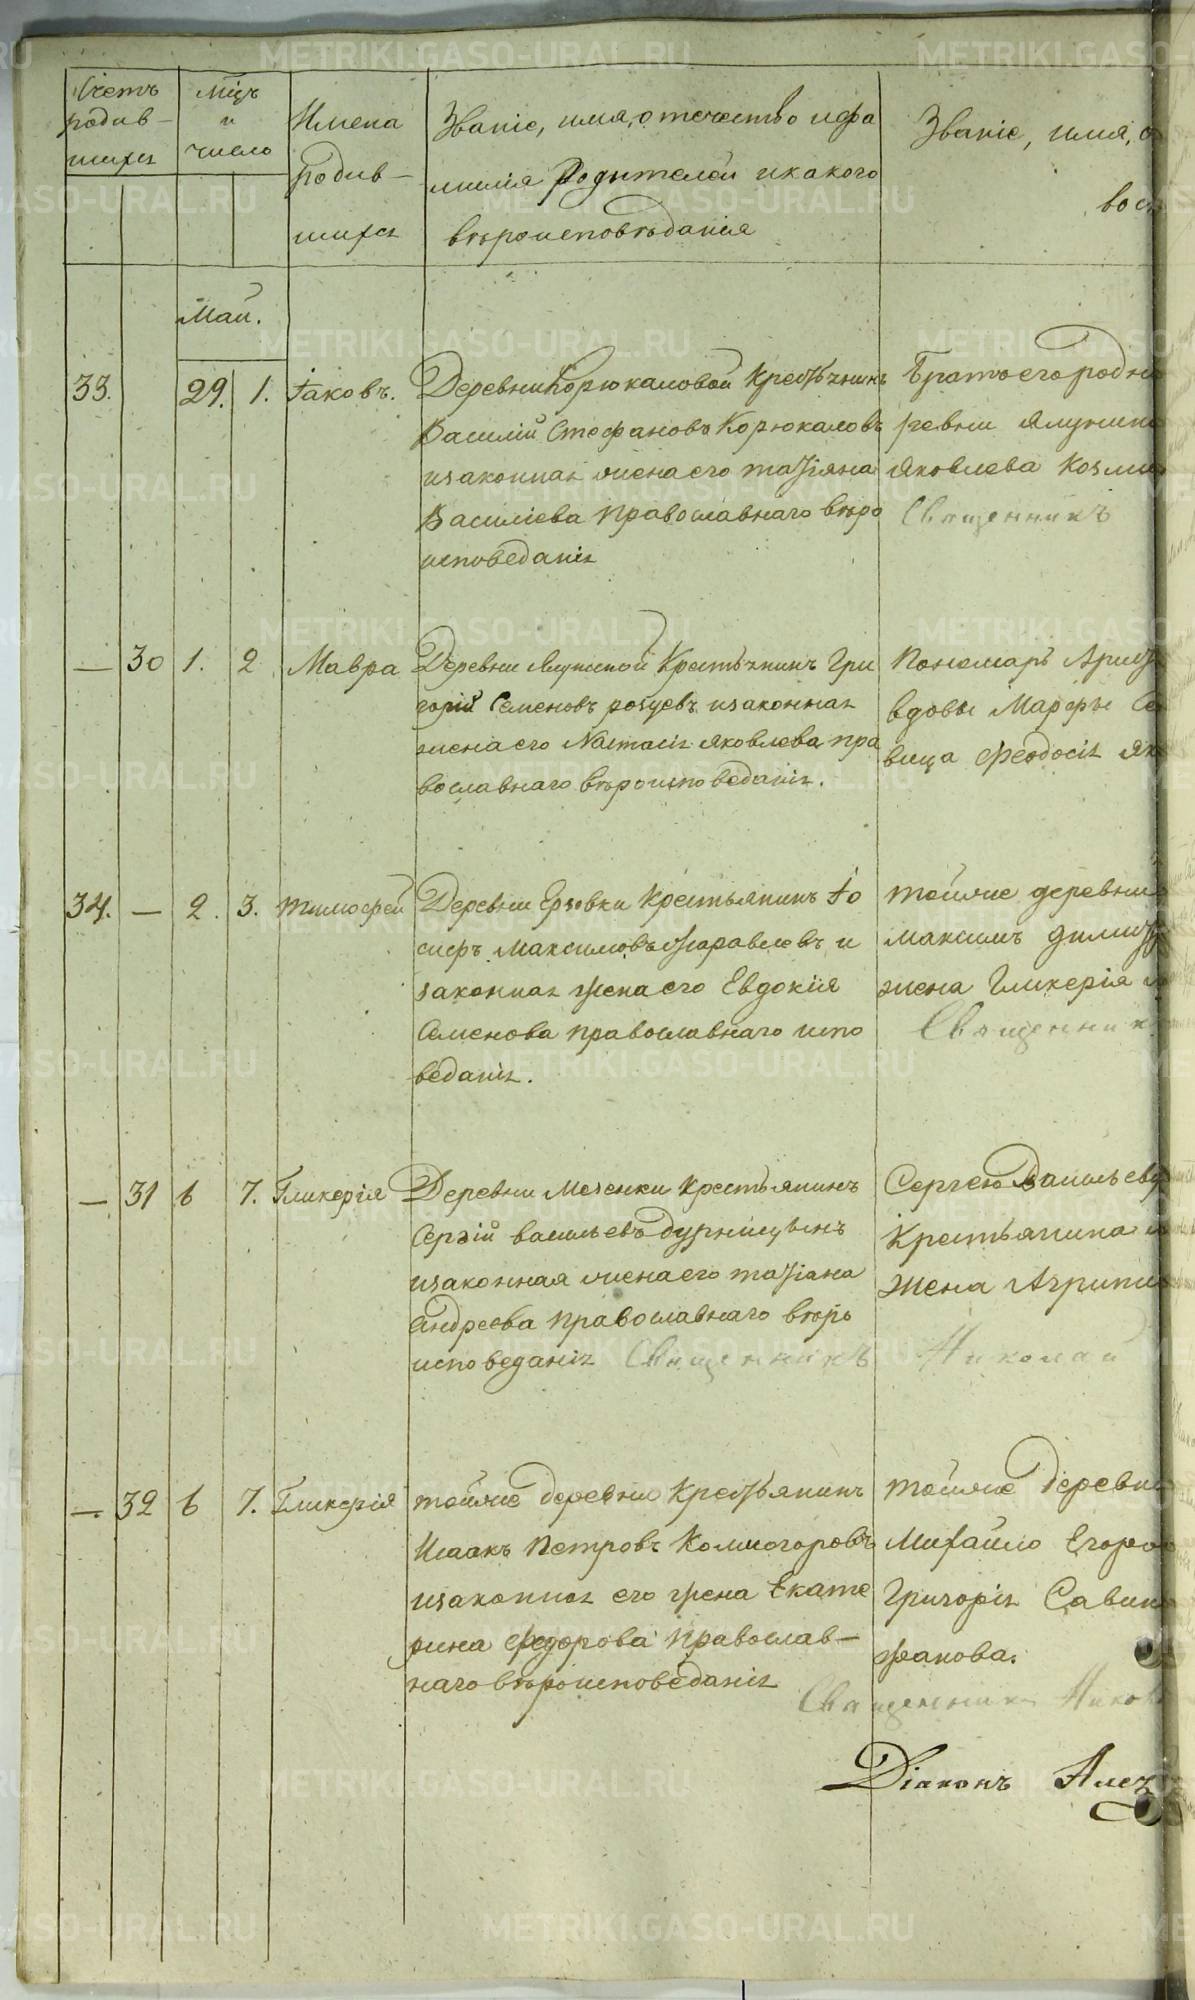 Счетъ родив-шихся
Мцъ и число
Имена родив-шихся
Званіе, имя, отечество и фамилія родителей и какого вѣроисповѣданія
Званіе, имя, о
вос
Май.
33. 29. 1. Іаковъ.
Деревни Корюкаловой Крестьянинъ
Василій Стефановъ Корюкаловъ
и законная жена его Татіяна
Василіева православнаго вѣро
исповеданія
Братъ его родн
ревни Ялунин
Яковлева Козми
Священникъ
— 30 1. 2 Мавра
Деревни Крестьянинъ Гри
горій Семеновъ и законная
жена его Настасія Яковлева пра
вославнаго вѣроисповеданія.
Пономаръ
вдовы Марфы Се
вица Феодосія Як
34. — 2. 3. Тимофей
Деревни Ерзовки Крестьянинъ Іо
сифъ Максимовъ Журавлевъ и
законная жена его Евдокія
Семенова православнаго испо
веданія.
тойже деревни
Максимъ
жена Гликерія
Священник
— 31 6 7. Гликерія
Деревни Мезенки Крестьянинъ
Сергій Васильевъ Дурницынъ
и законная жена его Татіана
Андреева православнаго вѣрѣ
исповеданія Священникъ Николай
Сергею Васильеву
Крестьянина
жена Агрипин
—. 32 6 7. Гликерія
тойже деревни Крестьянинъ
Исаакъ Петровъ Колмогоровъ
и законная его жена Екате
рина Федорова православ—
наго вѣроисповеданія
тойже деревни
Михайло Егоров
Григорія Савин
фанова.
Священникъ Никол
Діаконъ Алек
METRIKI.GASO-URAL.RU